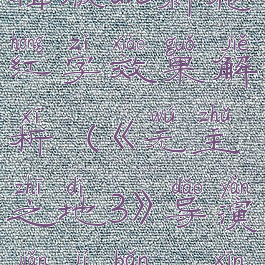 hóng zì xiào guǒ jiě
红字效果解
xī wú zhǔ
析(《无主
zhī dì dǎo yǎn
之地3》导演